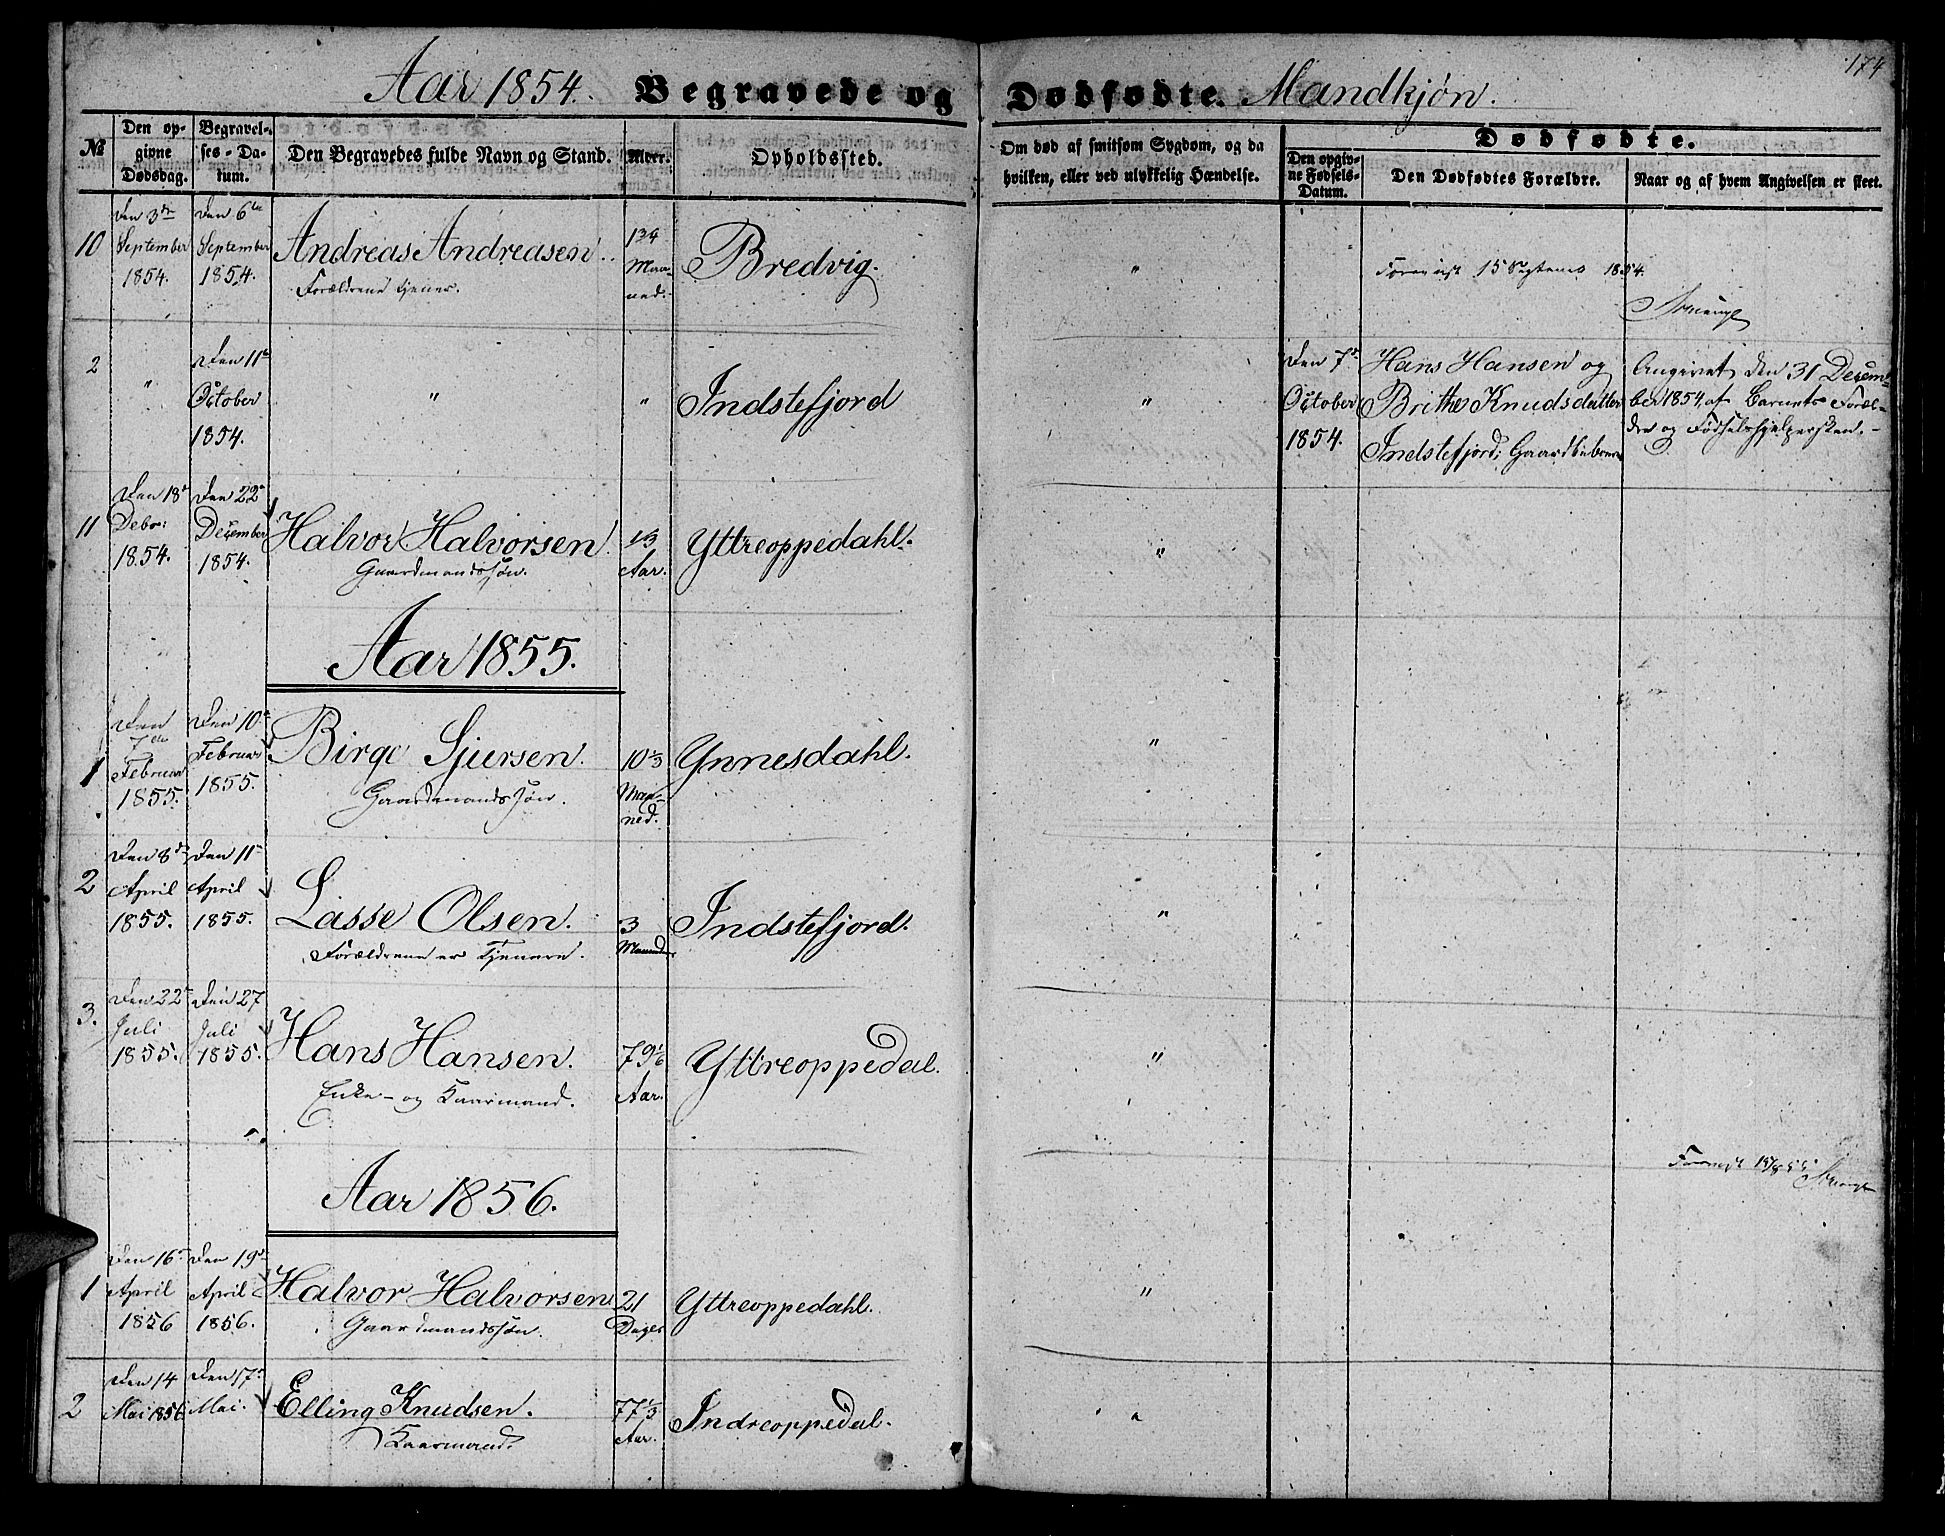 174
Aar 1854. Begravede og Dødfødte. Mandkjøn.
No
Den opgivne Dødsdag.
Begravelses-Datum.
Den Begravedes fulde Navn og Stand.
Alder.
Opholdssted.
Om død af smitsom Sygdom, og da
hvilken, eller ved ulykkelig Hændelse.
Dødfødte.
Den opgivne Fødsels-Datum.
Den Dødfødtes Forældre.
Naar og af hvem Angivelsen er skeet.
10
Den 3de
September
1854.
Den 6te
September
1854.
Andreas Andreasen.
Forældrene tjener.
Maaned.
Bredvig.
"
15 Septembr 1854.
2
"
Den 11te
October
1854.
"
"
Indstefjord
"
Den 7de
October
1854.
Hans Hansen og
Brithe Knudsdatter
Indstefjord; Gaardbrbr
Angivet den 31 Decem-
ber 1854, af Barnets Foræl-
dre og Fødselshjelpersken. -
11
Den 18de
Debr:
1854.
Den 22de
December
1854.
Halvor Halvorsen.
Gaardmandssøn.
Aar.
Yttreoppedahl.
"
Aar 1855.
1
Den
7de
Februar
1855.
Den 10de
Februar
1855.
Birge Sjursen.
Gaardmandssøn.
10
Maa-
ned.
Ynnesdahl.
"
2
Den 8de
April
1855.
Den 11te
April
1855.
Lasse Olsen.
Forældrene er Tjenere.
3
Maaneder
Indstefjord.
"
3.
Den 22de
Juli
1855.
Den 27
Juli
1855.
Hans Hansen.
Enke- og Kaarmand.
79 1/6
Aar.
Yttreoppedal.
"
Aar 1856.
1
Den 16de
April
1856
Den 19de
April
1856.
Halvor Halvorsen
Gaardmandssøn.
21
Dage
Yttreoppedahl.
"
2
Den 14
Mai 1856
Den 17de
Mai.
Elling Knudsen.
Kaarmand.
77 1/3
Aar.
Indreoppedal.
"